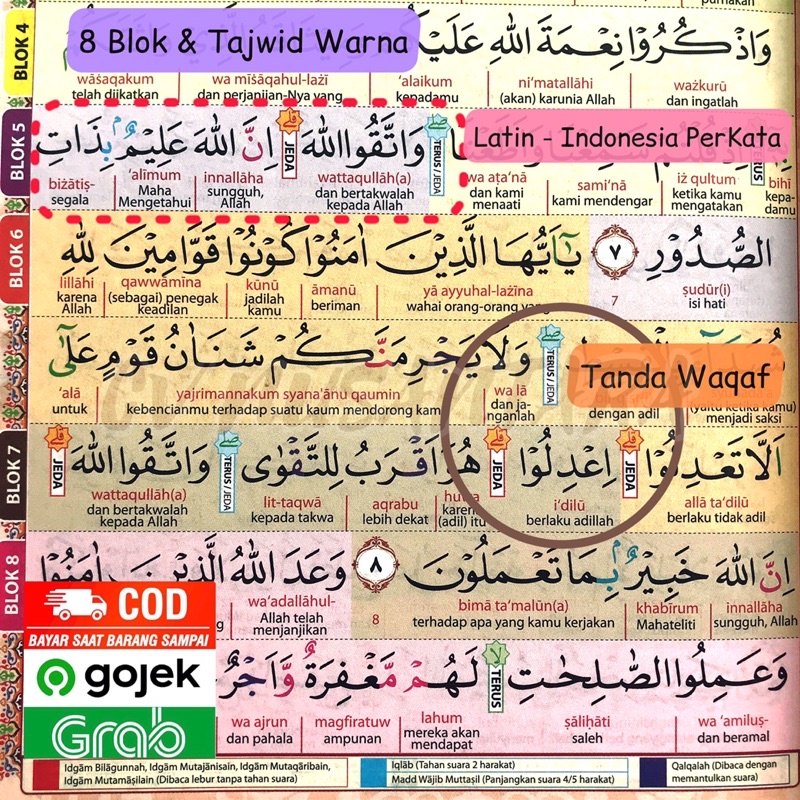 BLOK 4
8 Blok & Tajwid Warna
وَاذْكُرُوْا نِعْمَةَ اللّٰهِ عَلَيْكُمْ
wāṡaqakum wa mīṡāqahul-lażī ‘alaikum ni‘matallāhi ważkurū
telah diikatkan dan perjanjian-Nya yang kepadamu (akan) karunia Allah dan ingatlah
BLOK 5
وَاتَّقُوا اللّٰهَ ۗ اِنَّ اللّٰهَ عَلِيْمٌۢ بِذَاتِ
TERUS / JEDA
JEDA
Latin - Indonesia PerKata
biżātiṣ- ‘alīmum innallāha wattaqullāh(a) wa aṭa‘nā sami‘nā iż qultum bihī
segala Maha Mengetahui sungguh, Allah dan bertakwalah kepada Allah dan kami menaati kami mendengar ketika kamu mengatakan kepadamu
BLOK 6
الصُّدُوْرِ ٧ يٰٓاَيُّهَا الَّذِيْنَ اٰمَنُوْا كُوْنُوْا قَوَّامِيْنَ لِلّٰهِ
lillāhi qawwāmīna kūnū āmanū yā ayyuhal-lażīna 7 ṣudūr(i)
karena Allah (sebagai) penegak keadilan jadilah kamu beriman wahai orang-orang yang isi hati
وَلَا يَجْرِمَنَّكُمْ شَنَاٰنُ قَوْمٍ عَلٰٓى
TERUS / JEDA
Tanda Waqaf
‘alā yajrimannakum syana'ānu qaumin wa lā
untuk kebencianmu terhadap suatu kaum mendorong kam dan janganlah dengan adil (yaitu ketika kamu) menjadi saksi
BLOK 7
اَلَّا تَعْدِلُوْا ۗ اِعْدِلُوْا ۗ هُوَ اَقْرَبُ لِلتَّقْوٰى ۖ وَاتَّقُوا اللّٰهَ ۗ
JEDA TERUS / JEDA JEDA JEDA
wattaqullāh(a) lit-taqwā aqrabu huwa i‘dilū allā ta‘dilū
dan bertakwalah kepada Allah kepada takwa lebih dekat karena (adil) itu berlaku adillah berlaku tidak adil
BLOK 8
اِنَّ اللّٰهَ خَبِيْرٌۢ بِمَا تَعْمَلُوْنَ ٨ وَعَدَ اللّٰهُ الَّذِيْنَ اٰمَنُوْا
wa‘adallāhul- 8 bimā ta‘malūn(a) khabīrum innallāha
Allah telah menjanjikan terhadap apa yang kamu kerjakan Mahateliti sungguh, Allah
COD
BAYAR SAAT BARANG SAMPAI
gojek
Grab
وَعَمِلُوا الصّٰلِحٰتِ ۙ لَهُمْ مَّغْفِرَةٌ وَّاَجْرٌ
TERUS
wa ajrun magfiratuw lahum ṣāliḥāti wa ‘amiluṣ-
dan pahala ampunan mereka akan mendapat saleh dan beramal
Idgām Bilāgunnah, Idgām Mutajānisain, Idgām Mutaqāribain,
Idgām Mutamāṡilain (Dibaca lebur tanpa tahan suara)
Iqlāb (Tahan suara 2 harakat)
Madd Wājib Muttaṣil (Panjangkan suara 4/5 harakat)
Qalqalah (Dibaca dengan memantulkan suara)